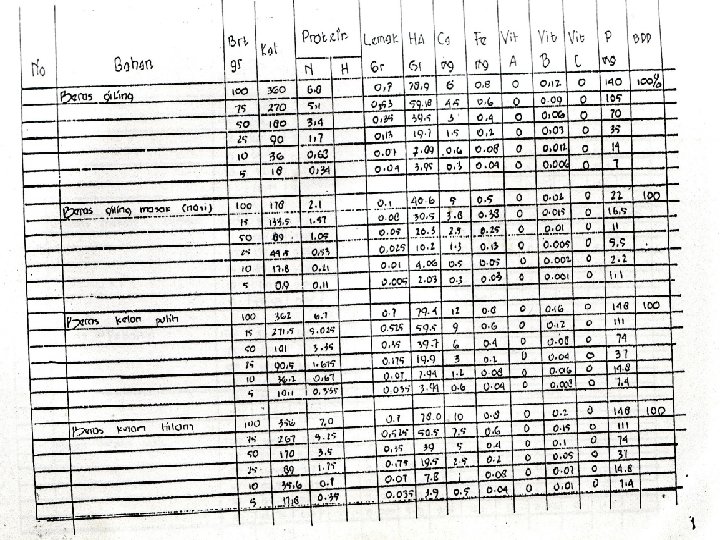 No Bahan Brt gr Kal Protein N H Lemak Gr HA Gr Ca mg Fe mg Vit A Vit B Vit C P mg BDD
Beras giling 100 360 6.8 0,7 78,9 6 0,8 0 0,12 0 140 100%
75 270 5,1 0,53 59.18 4.5 0.6 0 0.09 0 105
50 180 3.4 0,35 39,5 3 0.4 0 0,06 0 70
25 90 1.7 0,13 19.7 1.5 0.2 0 0,03 0 35
10 36 0,68 0.07 7.89 0.6 0.08 0 0.012 0 14
5 18 0,34 0.04 3,95 0.3 0.04 0 0.006 0 7
Beras giling masak (nasi) 100 178 2.1 0.1 40.6 5 0.5 0 0.02 0 22 100
75 133.5 1.57 0.08 30.5 3.8 0.38 0 0.015 0 16.5
50 89 1.05 0.05 20.3 2.5 0.25 0 0.01 0 11
25 44.5 0,53 0.025 10.2 1.3 0.13 0 0.005 0 5,5
10 17.8 0.21 0.01 4.06 0.5 0.05 0 0.002 0 2.2
5 8,9 0,11 0.005 2.03 0.3 0.03 0 0.001 0 1.1
Beras ketan putih 100 362 6.7 0.7 79.4 12 0.8 0 0.16 0 148 100
75 271,5 5.025 0.525 59,5 9 0.6 0 0.12 0 111
50 181 3.35 0.35 39.7 6 0.4 0 0.08 0 74
25 90,5 1.675 0.175 19.9 3 0.2 0 0.04 0 37
10 36.2 0,67 0.07 7.94 1.2 0.08 0 0.016 0 14.8
5 18.1 0.335 0.035 3.97 0.6 0.04 0 0,008 0 7.4
Beras ketan hitam 100 356 7,0 0.7 78.0 10 0.8 0 0.2 0 148 100
75 267 5.25 0,525 58.5 7.5 0.6 0 0.15 0 111
50 178 3.5 0.35 39 5 0.4 0 0.1 0 74
25 89 1.75 0.175 19.5 2.5 0.2 0 0.05 0 37
10 35.6 0.7 0.07 7.8 1 0.08 0 0.02 0 14.8
5 17.8 0.35 0.035 3.9 0.5 0.04 0 0.01 0 7.4
1